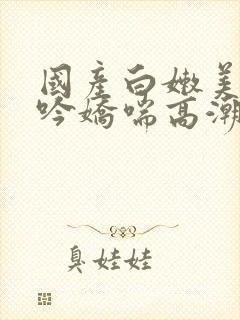 國產白嫩美
吟嬌喘高潮
臭娃娃